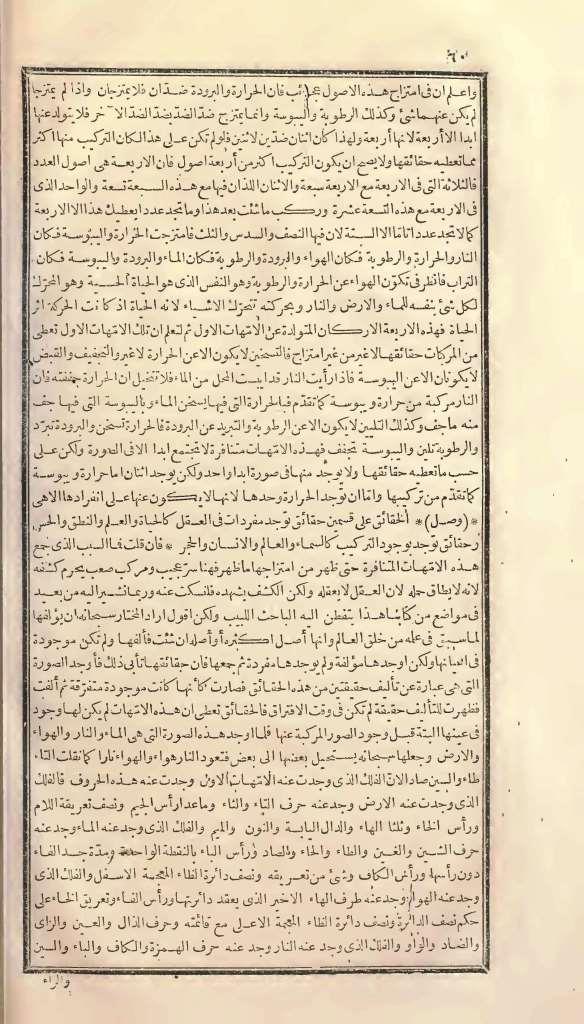 ٦٠
واعلم ان فى امتزاج هذه الاصول عجائب فان الحرارة والبرودة ضدّان فلا يمتزجان واذا لم يمتزجا
لم يكن عنهما شئ وكذلك الرطوبة واليبوسة وانما يمتزج ضدّ الضدّ بضدّ الضدّ الآخر فلا يتولد عنها
ابدا الا أربعة لانها أربعة ولهذا كان اثنان ضدّين لاثنين فلو لم تكن على هذا لكان التركيب منها اكثر
مما تعطيه حقائقها ولا يصح ان يكون التركيب اكثر من أربعة اصول فان الاربعة هى اصول العدد
فالثلاثة التى فى الاربعة مع الاربعة سبعة والاثنان اللذان فيها مع هذه السبعة تسعة والواحد الذى
فى الاربعة مع هذه التسعة عشرة وركب ما شئت بعد هذا وما تجد عددا يعطيك هذا الا الاربعة
كما لا تجد عددا تاما الا الستة لان فيها النصف والسدس والثلث فامتزجت الحرارة واليبوسة فكان
النار والحرارة والرطوبة فكان الهواء والبرودة والرطوبة فكان الماء والبرودة واليبوسة فكان
التراب فانظر فى تكوّن الهواء عن الحرارة والرطوبة وهو النفس الذى هو الحياة الحسية وهو المحرّك
لكل شئ بنفسه للماء والارض والنار وبحركته تتحرّك الاشياء لانه الحياة اذ كانت الحركة اثر
الحياة فهذه الاربعة الاركان المتولدة عن الامّهات الاول ثم لتعلم ان تلك الامّهات الاول تعطى
من المركبات حقائقها لا غير من غير امتزاج فالتسخين لا يكون الا عن الحرارة لا غير والتجفيف والتقبض
لا يكونان الا عن اليبوسة فاذا رأيت النار قد ايبست المحل من الماء فلا تتخيل ان الحرارة جففته فان
النار مركبة من حرارة ويبوسة كما تقدّم فبالحرارة التى فيها يسخن الماء وباليبوسة التى فيها جف
منه ما جف وكذلك التليين لا يكون الا عن الرطوبة والتبريد عن البرودة فالحرارة تسخن والبرودة تبرّد
والرطوبة تلين واليبوسة تجفف فهذه الامّهات متنافرة لا تجتمع ابدا الا فى الصورة ولكن على
حسب ما تعطيه حقائقها ولا يوجد منها فى صورة ابدا واحد ولكن يوجد اثنان اما حرارة ويبوسة
كما تقدّم من تركيبها واما ان توجد الحرارة وحدها لانها لا يكون عنها على انفرادها الا هى
*(وصل)* الحقائق على قسمين حقائق توجد مفردات فى العقل كالحياة والعلم والنطق والحس
وحقائق توجد بوجود التركيب كالسماء والعالم والانسان والحجر * فان قلت فما السبب الذى جمع
هذه الامّهات المتنافرة حتى ظهر من امتزاجها ما ظهر فهنا سرّ عجيب ومركب صعب يحرم كشفه
لانه لا يطاق حمله لان العقل لا يعقله ولكن الكشف يشهده فلنسكت عنه وربما نشير اليه من بعيد
فى مواضع من كتابنا هذا يتفطن اليه الباحث اللبيب ولكن اقول اراد المختار سبحانه ان يؤلفها
لما سبق فى علمه من خلق العالم وانها أصل اكثره أو أصله ان شئت فألفها ولم تكن موجودة
فى اعيانها ولكن اوجدها مؤلفة ولم يوجدها مفردة ثم جمعها فان حقائقها تأبى ذلك فأوجد الصورة
التى هى عبارة عن تأليف حقيقتين من هذه الحقائق فصارت كأنها كانت موجودة متفرّقة ثم ألفت
فظهرت للتأليف حقيقة لم تكن فى وقت الافتراق فالحقائق تعطى ان هذه الامّهات لم يكن لها وجود
فى عينها البتة قبل وجود الصور المركبة عنها فلما اوجد هذه الصورة التى هى الماء والنار والهواء
والارض وجعلها سبحانه يستحيل بعضها الى بعض فتعود النار هواء والهواء نارا كما تقلب التاء
طاء والسين صادا لان الفلك الذى وجدت عنه الامّهات الاول وجدت عنه هذه الحروف فالفلك
الذى وجدت عنه الارض وجد عنه حرف التاء والثاء وما عدا رأس الجيم ونصف تعريقة اللام
ورأس الخاء وثلثا الهاء والدال اليابسة والنون والميم والفلك الذى وجد عنه الماء وجد عنه
حرف الشين والغين والطاء والحاء والضاد ورأس الباء بالنقطة الواحدة ومدّة جسد الفاء
دون رأسها ورأس الكاف وشئ من تعريقه ونصف دائرة الظاء المعجمة الاسفل والفلك الذى
وجد عنه الهواء وجد عنه طرف الهاء الاخير الذى يعقد دائرتها ورأس الفاء وتعريق الخاء على
حكم نصف الدائرة ونصف دائرة الظاء المعجمة الاعلى مع قائمته وحرف الذال والعين والزاى
والضاد والواو والفلك الذى وجد عنه النار وجد عنه حرف الهمزة والكاف والباء والسين
والراء